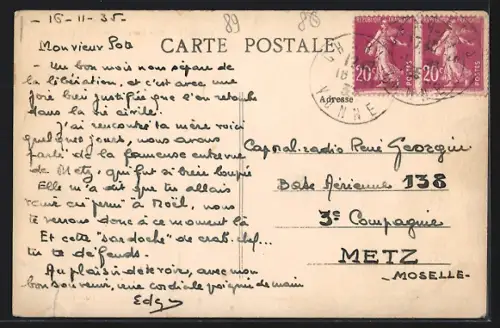 - 16-11-35
89
CARTE POSTALE
Monsieur
- Un bon mois nous sépare de
la libération, et c'est avec une
joie bien justifiée que l'on retourne
dans la vie civile.
J'ai rencontré ta mère voici
quelques jours, nous avons
parlé de la fameuse entrevue
de Metz, qui fut si bien loupée
Elle m'a dit que tu allais
venir en perm' à Noël, nous
te verrons donc à ce moment là
Et cette "sardoche" de crab-chef...
tu te défends.
Au plaisir de te voir, avec mon
bon souvenir, une cordiale poignée de main
Edgar
RÉPUBLIQUE FRANÇAISE
20c
POSTES
RÉPUBLIQUE FRANÇAISE
20c
POSTES
YONNE
Adresse
Caporal-radio René Georgin
Base Aérienne 138
3e Compagnie
METZ
- MOSELLE -